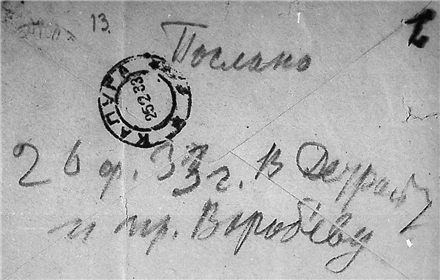 13.
Послано
КАПУРА
25 2 33
26 ф. 33 г. в Детройт
и пр. Воробьеву